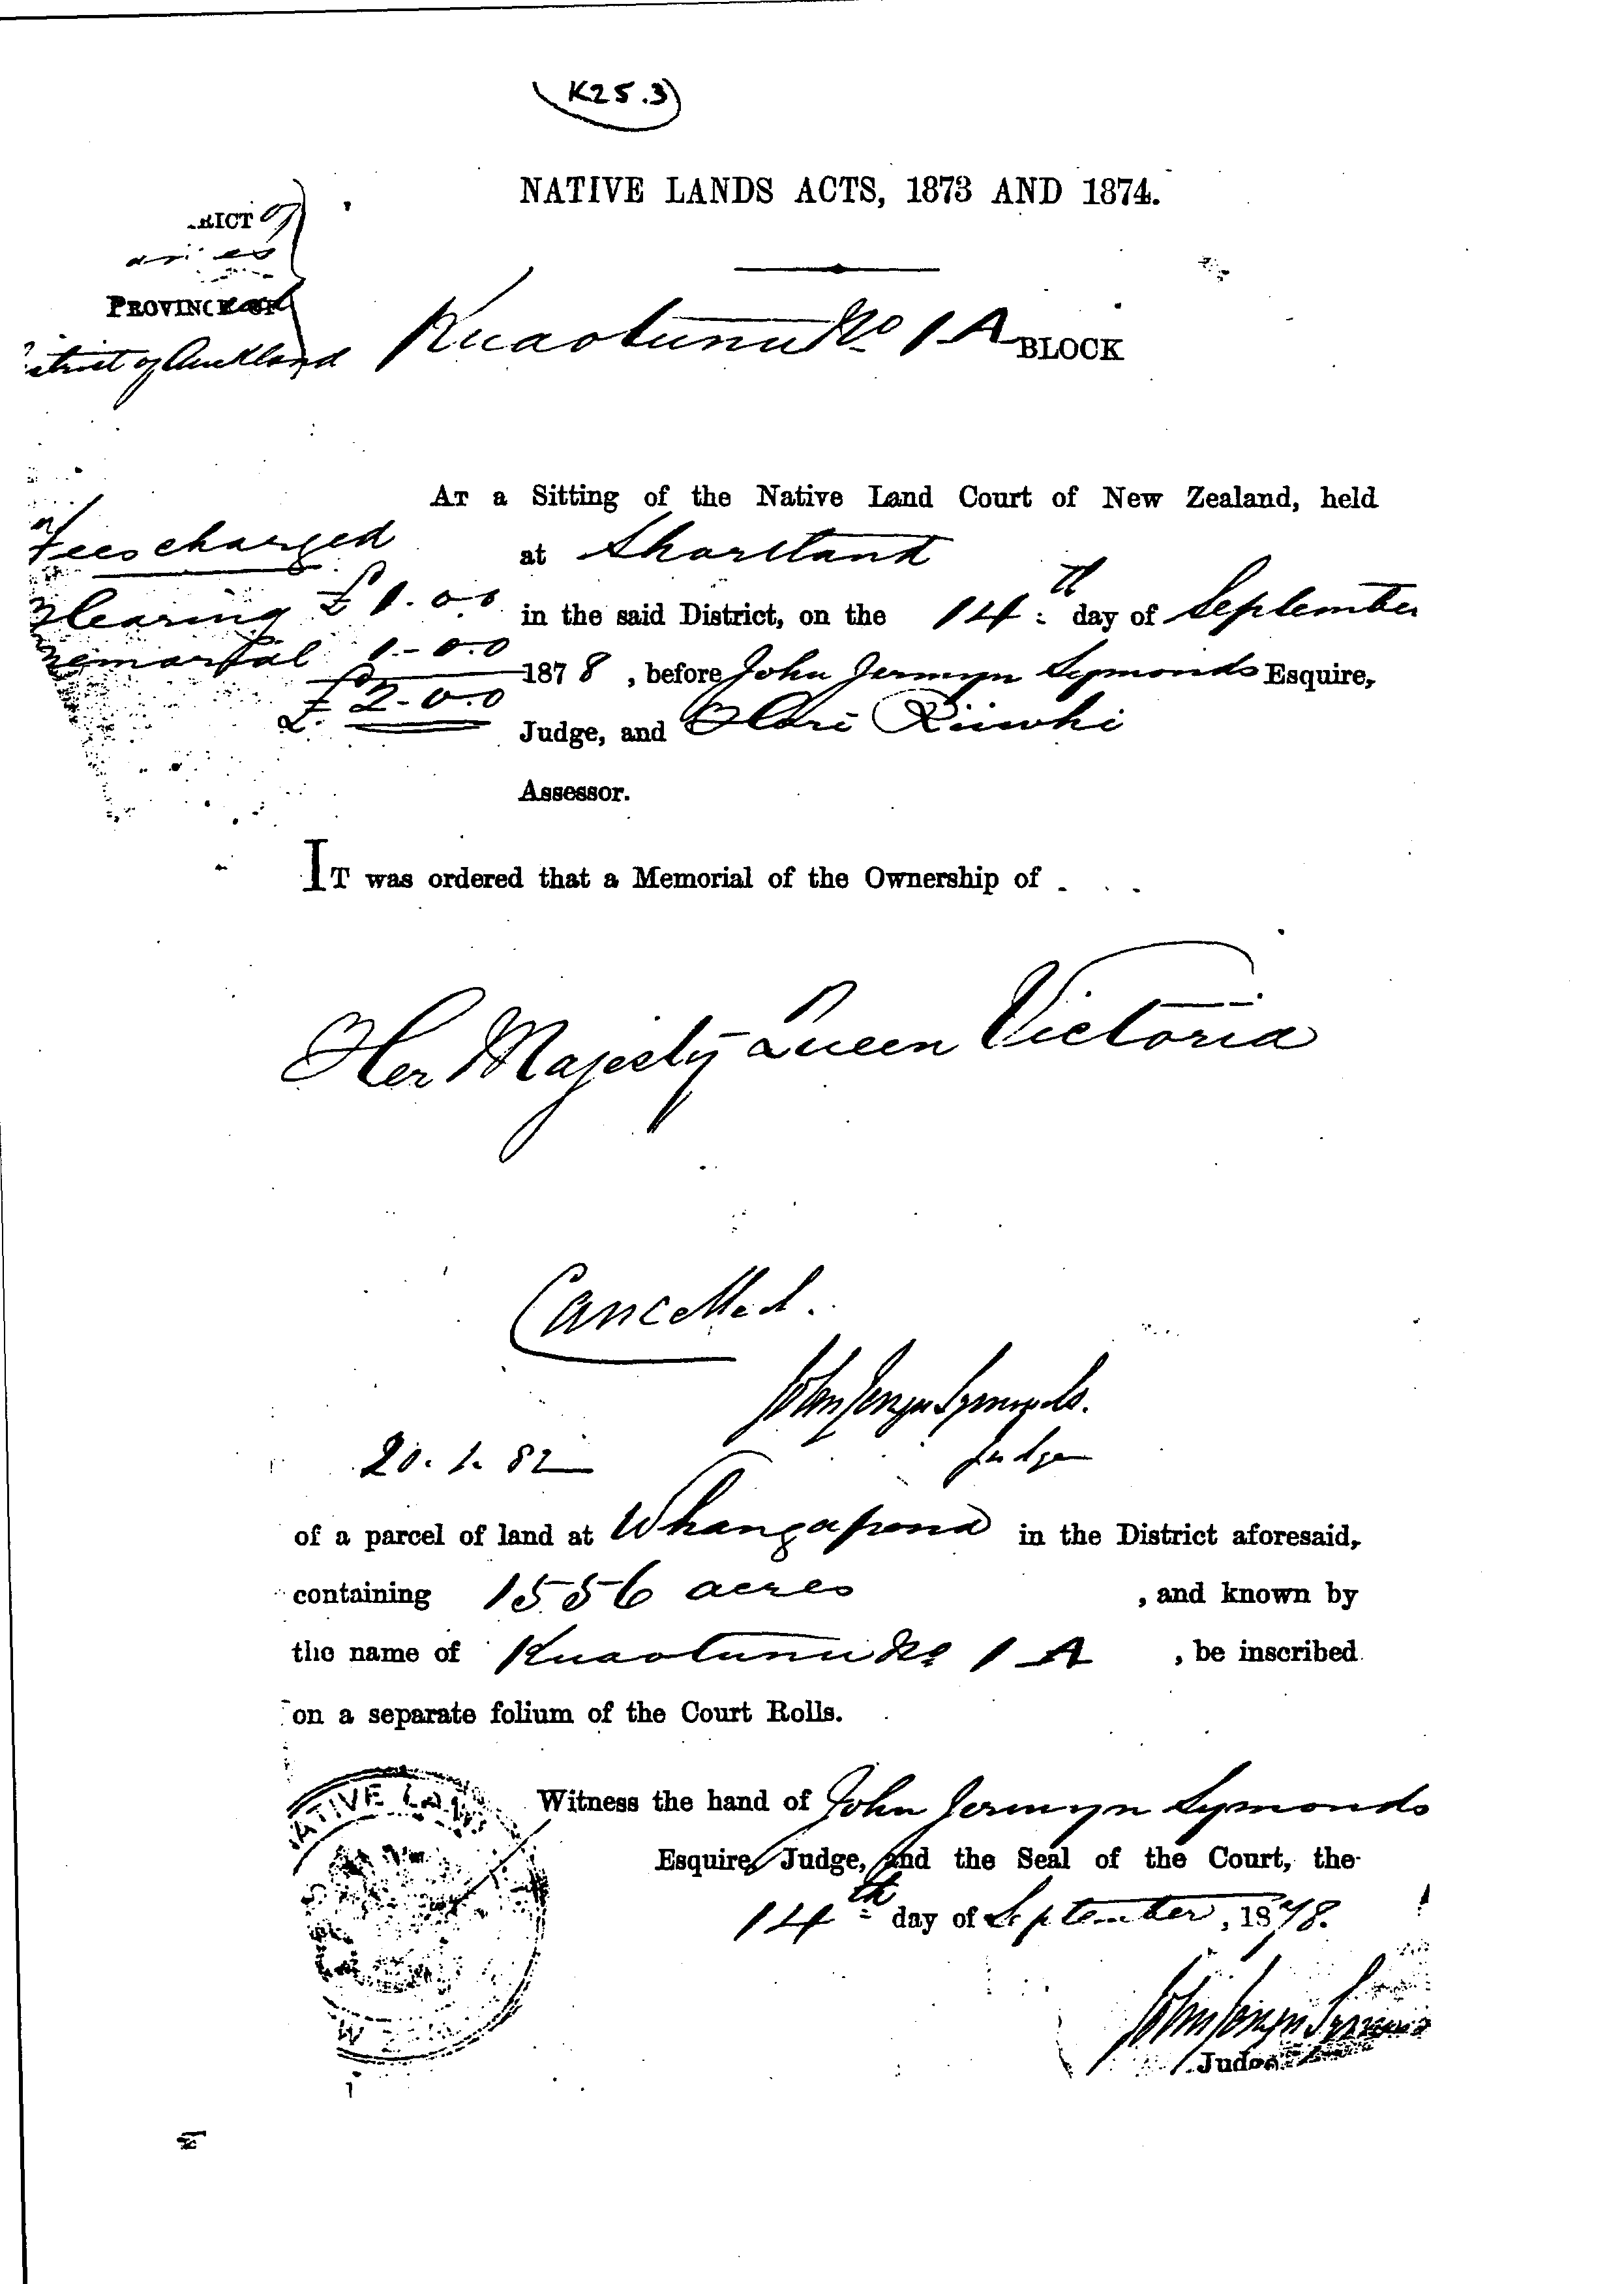 K25.3
NATIVE LANDS ACTS, 1873 AND 1874.
RICT of
PROVINCE OF
District of Auckland
Kuaotunu No 1 A BLOCK
AT a Sitting of the Native Land Court of New Zealand, held
at Shortland
in the said District, on the 14th day of September
1878, before John Jermyn Symonds Esquire,
Judge, and Hori Riiwhi
Assessor.
Fees charged
Hearing £1.0.0
Memorial 1-0.0
£2-0.0
IT was ordered that a Memorial of the Ownership of
Her Majesty Queen Victoria
Cancelled.
John Jermyn Symonds.
Judge
20.1.82
of a parcel of land at Whangapoua in the District aforesaid,
containing 1556 acres , and known by
the name of Kuaotunu No 1 A , be inscribed
on a separate folium of the Court Rolls.
NATIVE LAN
Witness the hand of John Jermyn Symonds
Esquire, Judge, and the Seal of the Court, the
14th day of September, 1878.
John Jermyn Symonds
Judge